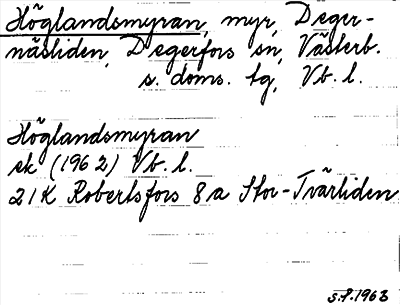 Höglandsmyran, myr, Deger-
näsliden, Degerfors sn, Västerb.
s. doms. tg, Vb. l.
Höglandsmyran
ek (1962) Vb. l.
21K Robertsfors 8a Stor-Tvärliden
s.f.1963